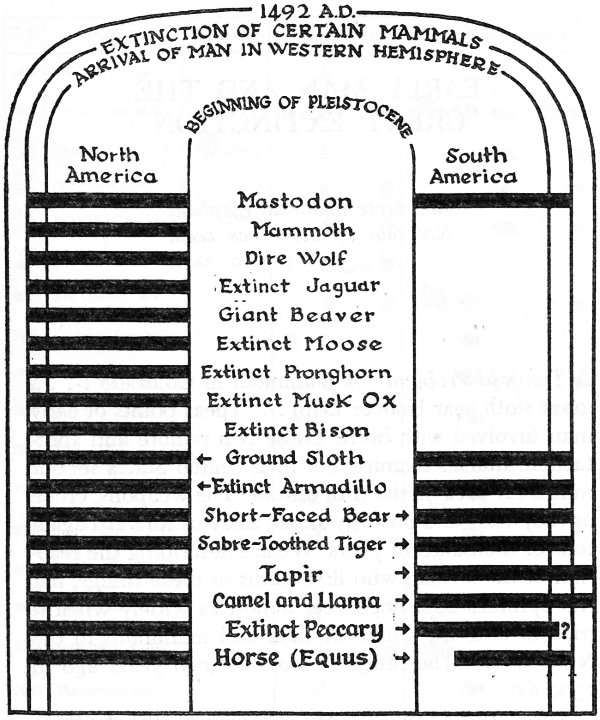 1492 A.D.
EXTINCTION OF CERTAIN MAMMALS
ARRIVAL OF MAN IN WESTERN HEMISPHERE
BEGINNING OF PLEISTOCENE
North
America
South
America
Mastodon
Mammoth
Dire Wolf
Extinct Jaguar
Giant Beaver
Extinct Moose
Extinct Pronghorn
Extinct Musk Ox
Extinct Bison
← Ground Sloth
← Extinct Armadillo
Short-Faced Bear →
Sabre-Toothed Tiger →
Tapir →
Camel and Llama →
Extinct Peccary → ?
Horse (Equus) →